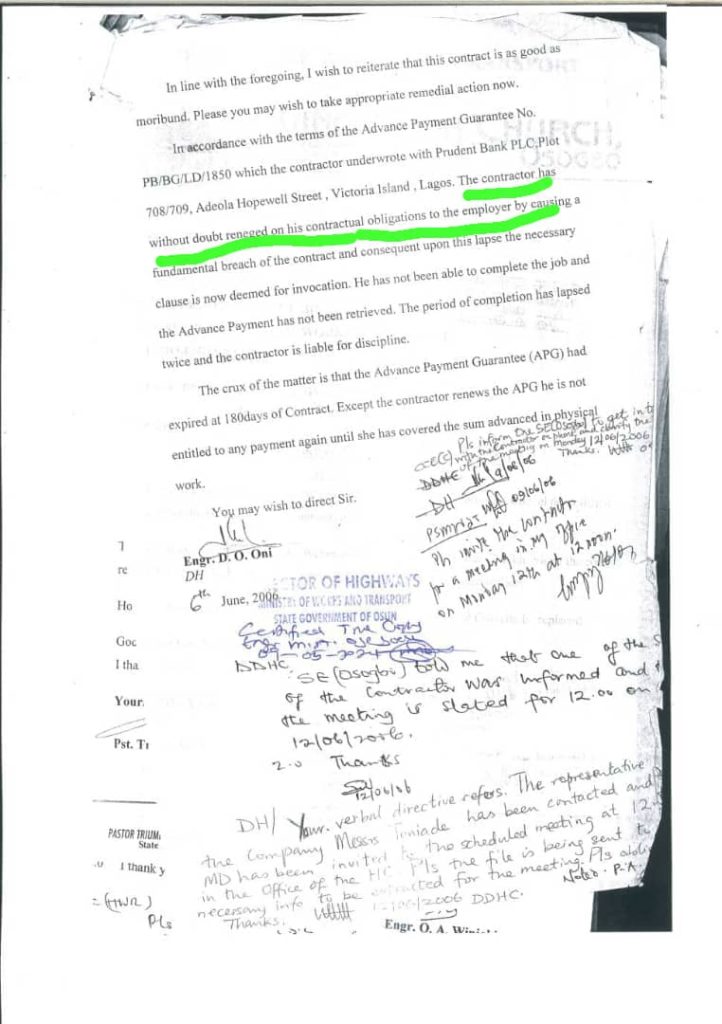 In line with the foregoing, I wish to reiterate that this contract is as good as
moribund. Please you may wish to take appropriate remedial action now.
In accordance with the terms of the Advance Payment Guarantee No.
PB/BG/LD/1850 which the contractor underwrote with Prudent Bank PLC,Plot
708/709, Adeola Hopewell Street , Victoria Island , Lagos. The contractor has
without doubt reneged on his contractual obligations to the employer by causing a
fundamental breach of the contract and consequent upon this lapse the necessary
clause is now deemed for invocation. He has not been able to complete the job and
the Advance Payment has not been retrieved. The period of completion has lapsed
twice and the contractor is liable for discipline.
The crux of the matter is that the Advance Payment Guarantee (APG) had
expired at 180days of Contract. Except the contractor renews the APG he is not
entitled to any payment again until she has covered the sum advanced in physical
work.
Pls inform the SE(Osogbo) to get into
with the Contractor on phone and clarify the
of the meeting on Monday 12/06/2006
Thanks.
DDHC
9/06/06
DH
09/06/06
Pls invite the Contractor
for a meeting in my office
on Monday 12th at 12.00noon.
You may wish to direct Sir.
Engr. D. O. Oni
DH
6th June, 2006
CTOR OF HIGHWAYS
MINISTRY OF WORKS AND TRANSPORT
STATE GOVERNMENT OF OSUN
Certified True Copy
09-05-2024
re
Ho
Goc
I tha
Your
Pst. Tr
DDHC
SE (Osogbo) told me that one of the
of the Contractor was informed and
the meeting is slated for 12.00 on
12/06/2006.
2.0 Thanks
12/06/06
DH/ Your verbal directive refers. The representative
the Company Messrs Toniade has been contacted and
MD has been invited to the scheduled meeting at 12
in the Office of the Pls the file is being sent to
necessary info to be extracted for the meeting. Pls
Thanks. 12/06/2006 DDHC.
Noted. P.A
PASTOR TRIUM
State
I thank y
(HWR)
Pls
Engr. O. A.
CHURCH,
OSOGBO